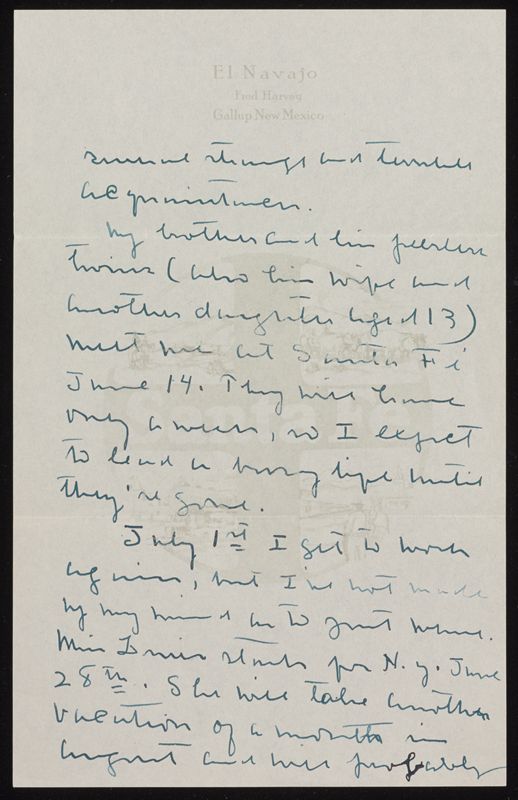 El Navajo
Fred Harvey
Gallup New Mexico
several things and terrible
acquaintances.
My brother and his peerless
twins (also his wife and
another daughter aged 13)
meet me at Santa Fé
June 14. They will have
only a week, so I expect
to lead a busy life until
they're gone.
July 1st I get to work
again, but I've not made
up my mind as to just where.
Miss Lewis starts for N.Y. June
28th. She will take another
vacation of a month in
August and will probably